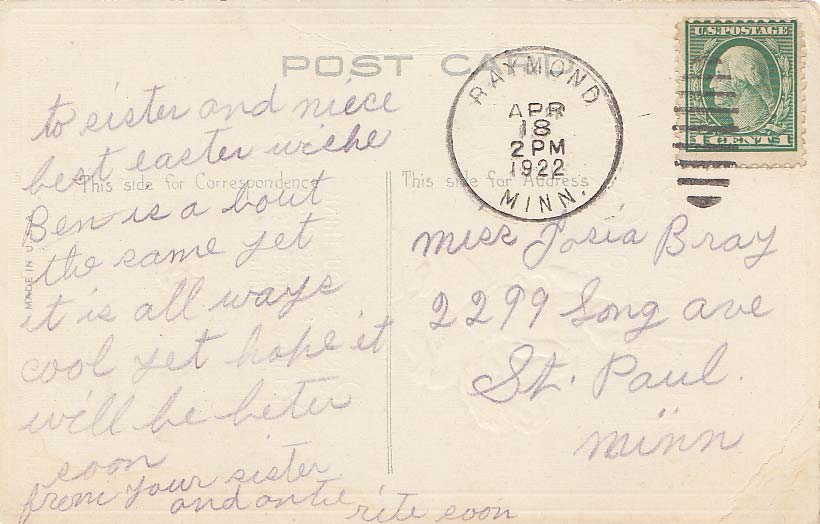 POST CARD
RAYMOND
APR
18
2 PM
1922
MINN.
U.S. POSTAGE
1 CENTS 1
This side for Correspondence
This side for Address
MADE IN U.S.A.
to sister and niece
best easter wiche
Ben is a bout
the same yet
it is all ways
cool yet hope it
will be beter
soon
from your sister
and antie
rite soon
Miss Josia Bray
2299 Long ave
St. Paul.
Minn